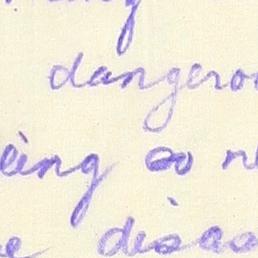 dangerou
eing so n
e disea